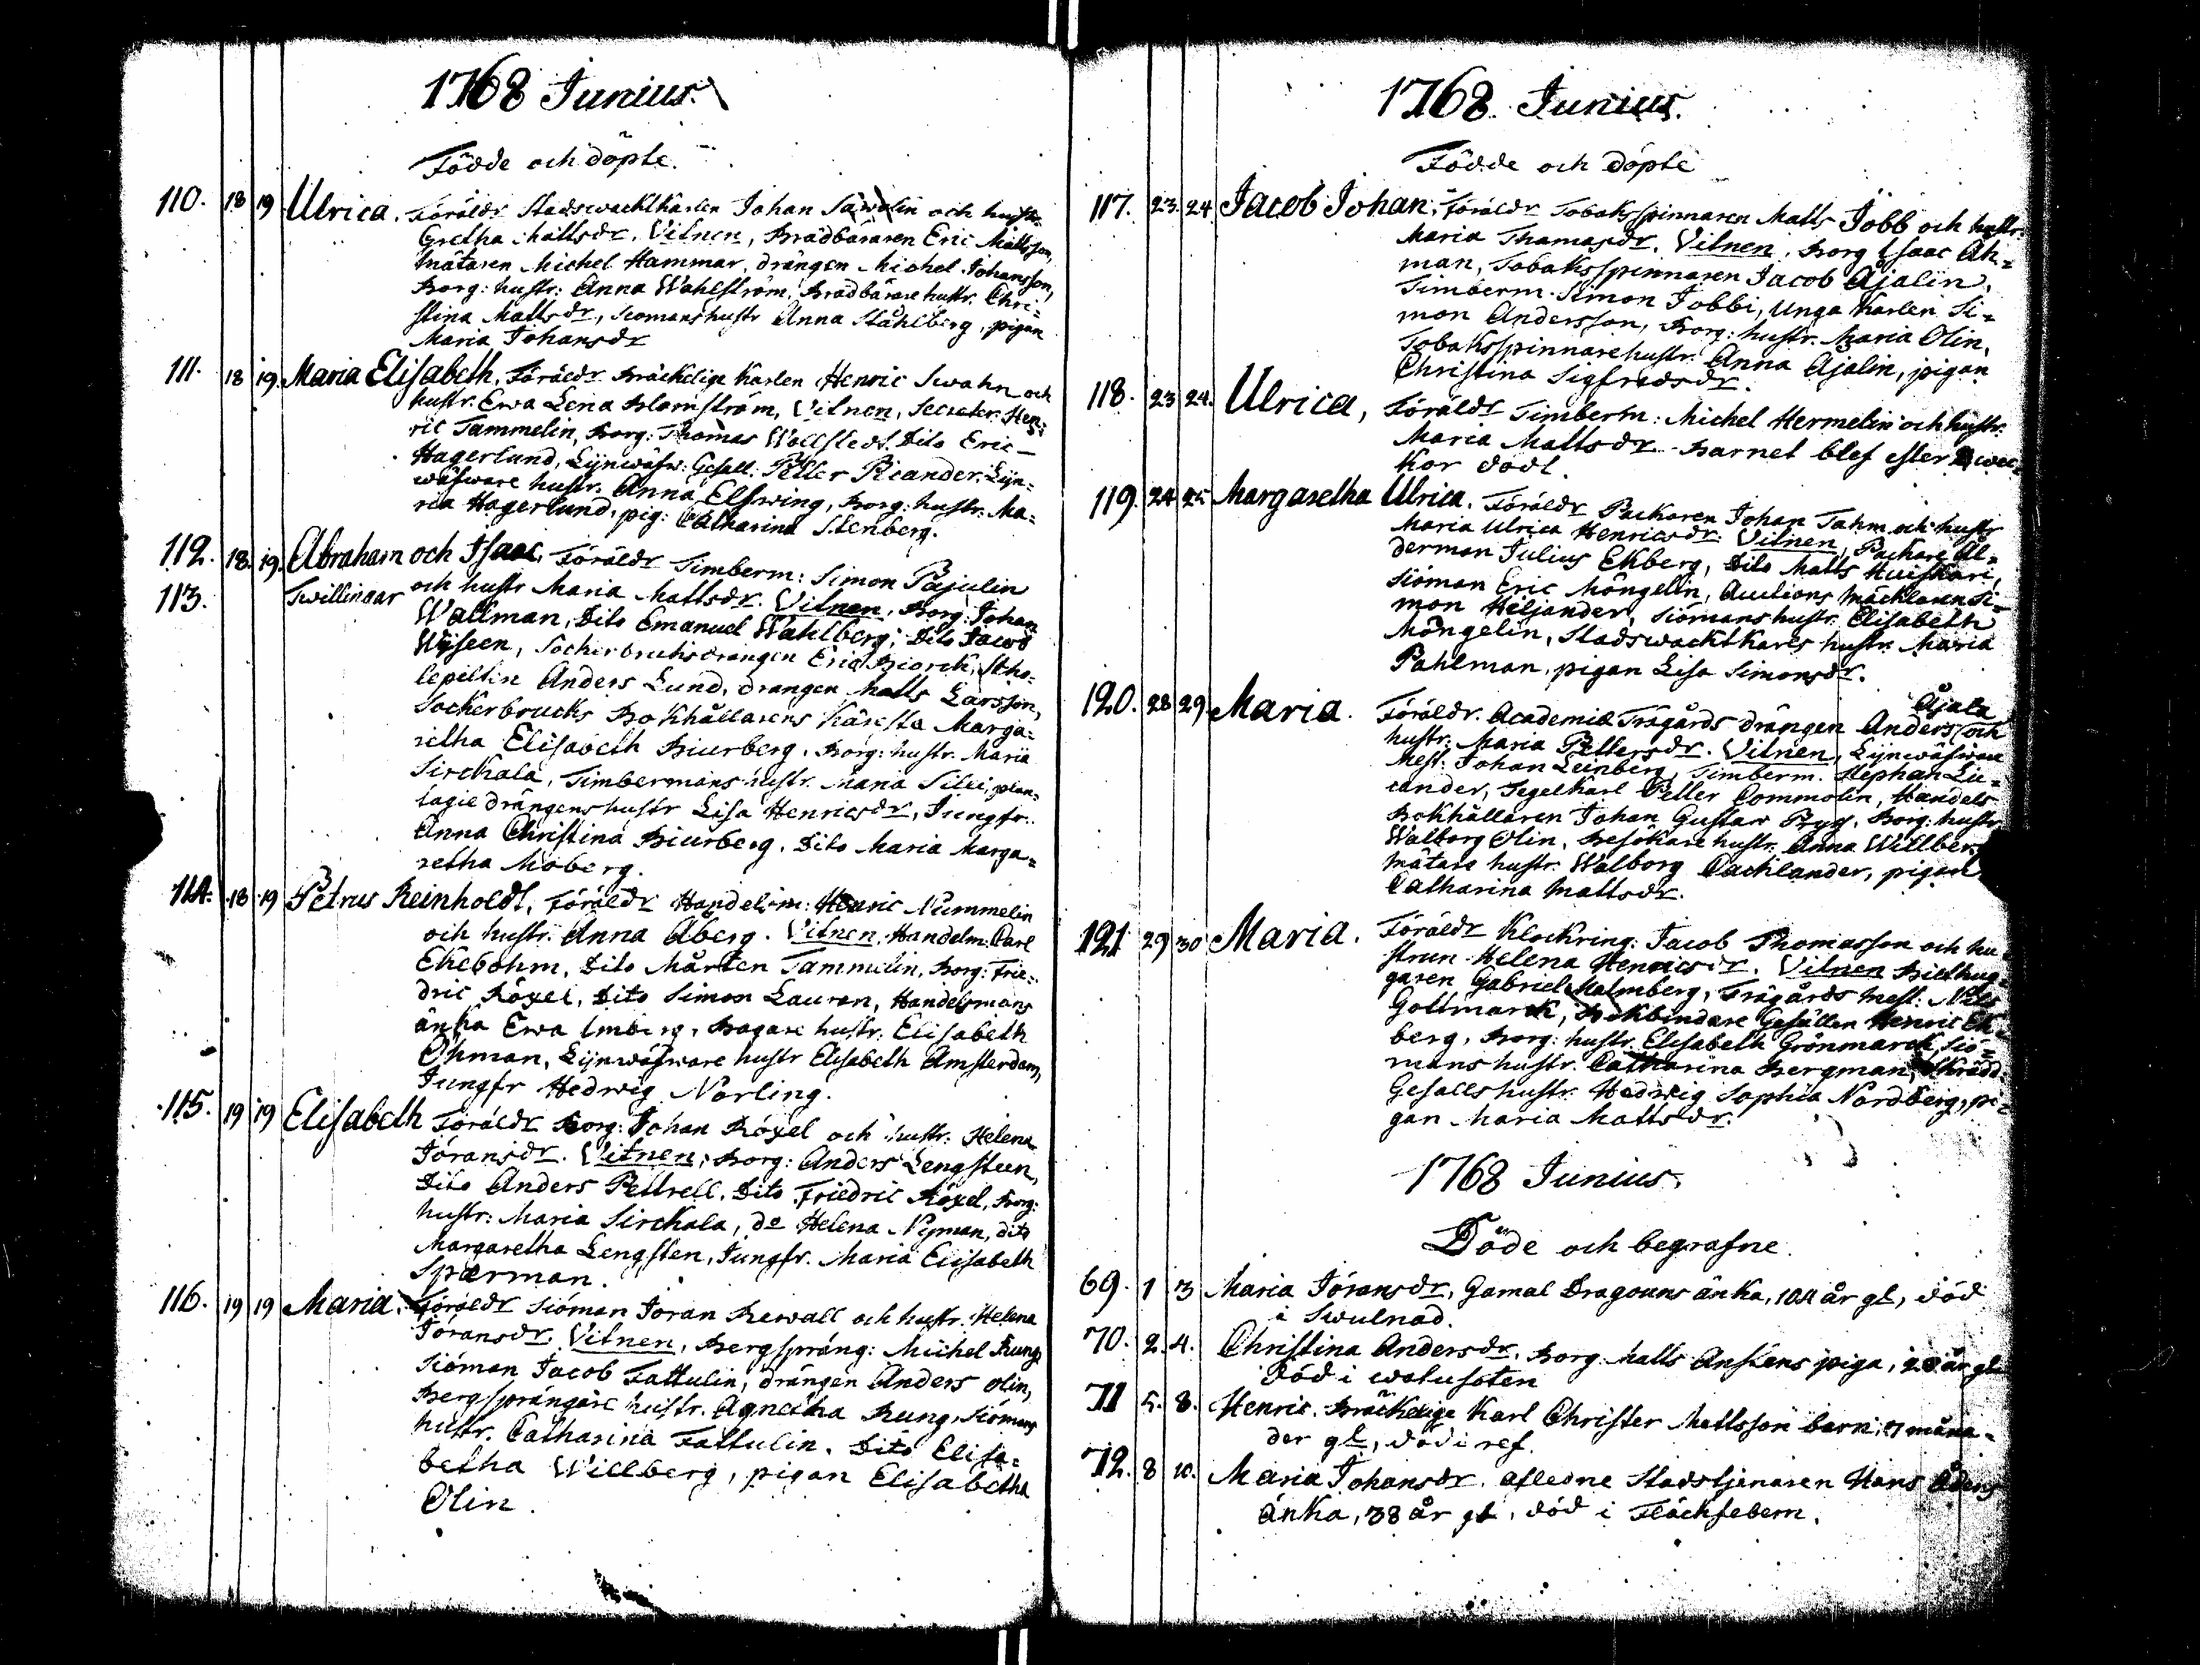 1768 Junius.
Födde och döpte.
110. 18 19 Ulrica. Föräldr Stadswachtkarlen Johan Sawolin och hustr.
Gretha Mattsdr. Vitnen, Brädbäraren Eric Mattsson,
Mätaren Michel Hammar, drängen Michel Johansson,
Borg: hustr: Anna Wahlström, Brädbärare hustr. Chri=
stina Mattsdr, Siömans hustr Anna Ståhlberg, pigan
Maria Johansdr
111. 18 19. Maria Elisabeth. Föräldr Bräckelige Karlen Henric Swahn och
hustr. Ewa Lena Blomström, Vitnen, Secreter. Hen=
ric Tammelin, Borg: Thomas Wollstedt. Dito Eric
Hagerlund, Lijnwäfw: Gesäll: Petter Ricander. Lijn=
wäfware hustr. Anna Elfwing, Borg: hustr: Ma=
ria Hagerlund, pig: Catharina Stenberg.
112. 18. 19. Abraham och Isaac. Föräldr Timberm: Simon Pajulin
113. Twillingar och hustr Maria Mattsdr. Vitnen, Borg: Johan
Wallman, Dito Emanuel Wahlberg, Dito Jacob
Wijseen, Sockerbruksdrängen Eric Biörck, Sko=
lepiltin Anders Lund, drängen Matts Larsson,
Sockerbrucks Bokhållarens Käresta Marga=
retha Elisabeth Biurberg, Borg: hustr. Maria
Sirckala, Timbermans hustr. Maria Silei, plan=
tagie drängens hustr Lisa Henricsdr, Jungfr.
Anna Christina Biurberg, Dito Maria Marga=
retha Moberg.
114. 18 19 Petrus Reinholdt, Föräldr Handelsm: Henric Nummelin
och hustr. Anna Åberg. Vitnen, Handelm: Carl
Ekebohm, Dito Mårten Tammelin, Borg: Frie=
dric Röxel, Dito Simon Lauren, Handelsmans
änka Ewa Imberg, Bagare hustr. Elisabeth
Öhman, Lijnwäfware hustr Elisabeth Amsterdam,
Jungfr Hedwig Norling.
115. 19 19 Elisabeth Föräldr Borg: Johan Röxel och hustr. Helena
Jöransdr. Vitnen, Borg: Anders Lengsteen,
Dito Anders Pettrell, Dito Friedric Röxel, Borg:
hustr: Maria Sirckala, do Helena Nyman, dito
Margaretha Lengsten, Jungfr. Maria Elisabeth
Spærman.
116. 19 19 Maria. Föräldr Siöman Jöran Rewall och hustr. Helena
Jöransdr. Vitnen, Bergspräng: Michel Rung
Siöman Jacob Fattulin, drängen Anders Olin,
Bergsprängare hustr. Agnetha Rung, Siömans
hustr. Catharina Fattulin. Dito Elisa=
betha Willberg, pigan Elisabetha
Olin.
1768. Junius.
Födde och döpte
117. 23. 24 Jacob Johan, Föräldr Tobaksspinnaren Matts Jobb och hustr.
Maria Thomasdr. Vitnen, Borg Isaac Åh=
man, Tobaksspinnaren Jacob Ajalin,
Timberm. Simon Jobbi, Unga Karlen Si=
mon Andersson, Borg: hustr. Maria Olin,
Tobaksspinnare hustr. Anna Ajalin, pigan
Christina Sigfredsdr.
118. 23 24. Ulrica, Föräldr Timberm: Michel Hermelin och hustr.
Maria Mattsdr. Barnet blef efter wec=
kor dödt.
119. 24 25 Margaretha Ulrica. Föräldr Packaren Johan Tahm och hustr
Maria Ulrica Henricsdr. Vitnen, Packare Ål=
derman Julius Ekberg, Dito Matts Huiskari,
Siöman Eric Möngelin, Auctions Mäcklaren Si=
mon Heljander, Siömans hustr. Elisabeth
Möngelin, Stadswacktkarls hustr. Maria
Pahlman, pigan Lisa Simonsdr.
120. 28 29. Maria. Föräldr. Academiæ Trägårds drängen Anders Äjala och
hustr. Maria Pettersdr. Vitnen, Lijnwäfware
Mest: Johan Leinberg, Timberm. Stephan Lu=
cander, Segelkarl Petter Commolin, Handels
Bokhållaren Johan Gustaw Pryss, Borg: hustr
Walborg Olin, Besökare hustr. Anna Willberg
Mätare hustr. Walborg Cachlander, pigan
Catharina Mattsdr.
121 29 30 Maria. Föräldr Klockring: Jacob Thomasson och hu=
strun Helena Henricsdr. Vitnen Bildhug=
garen Gabriel Malmberg, Trägårds Mest: Nils
Gottmarck, Bokbindare Gesällen Henric Ek=
berg, Borg: hustr. Elisabeth Grönmarck, Siö=
mans hustr. Catharina Bergman, Skrädd:
Gesälls hustr. Hedwig Sophia Nordberg, pi=
gan Maria Mattsdr.
1768 Junius.
Döde och begrafne.
69. 1 3 Maria Jöransdr, Gamal Dragouns änka, 104 år gl, död
i Swulnad.
70. 2. 4. Christina Andersdr. Borg. Matts Anstens piga, 28 år gl
död i watusoten
71 5. 8. Henric. Bräckelige Karl Christer Mattsson barn, 7 måna=
der gl, död i ref.
72. 8 10. Maria Johansdr. afledne Stadstjenaren Hans Ådens
änka, 38 år gl, död i Fläckfebern.